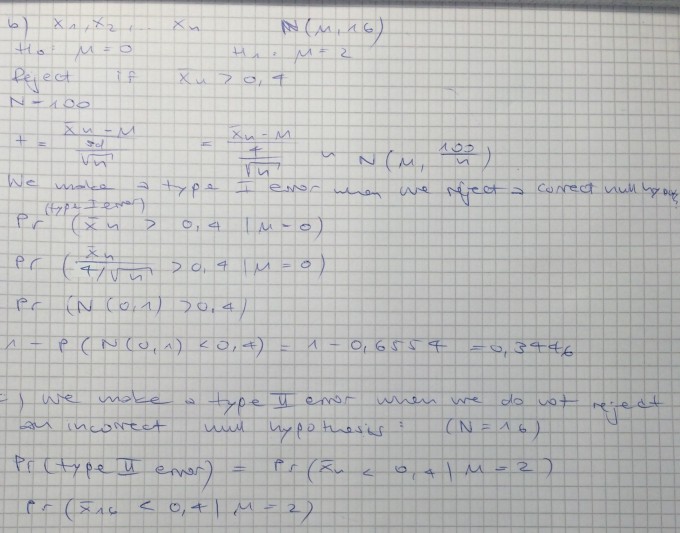 b) x1, x2, ... xn N(μ, 16)
H0: μ = 0 H1: μ = 2
Reject if x̄n > 0,4
N = 100
t = (x̄n - μ) / (sd/√n) = (x̄n - μ) / (4/√n) ~ N(μ, 100/n)
We make a type I error when we reject a correct null hypothesis
(type I error)
Pr (x̄n > 0,4 | μ = 0)
Pr (x̄n / (4/√n) > 0,4 | μ = 0)
Pr (N(0,1) > 0,4)
1 - P(N(0,1) < 0,4) = 1 - 0,6554 = 0,3446
c) We make a type II error when we do not reject
an incorrect null hypothesis: (N = 16)
Pr(type II error) = Pr(x̄n < 0,4 | μ = 2)
Pr(x̄16 < 0,4 | μ = 2)